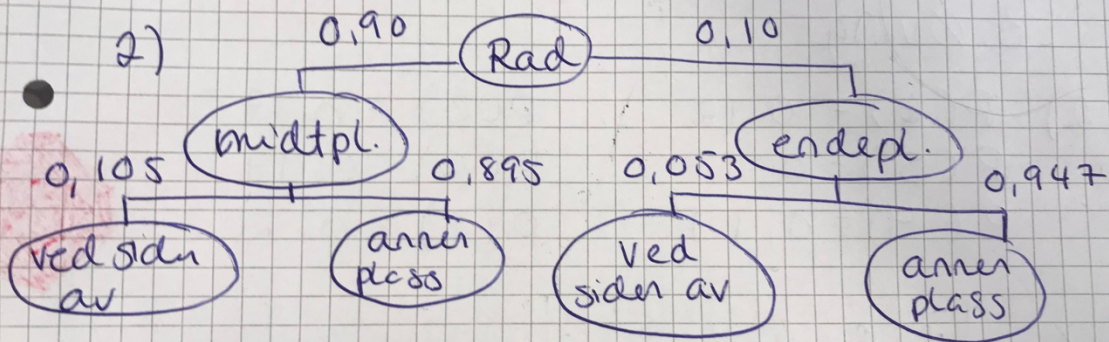 2) 0,90 Rad 0,10
midtpl. endepl.
0,105 0,895 0,053 0,947
ved siden av
annen plass
ved siden av
annen plass